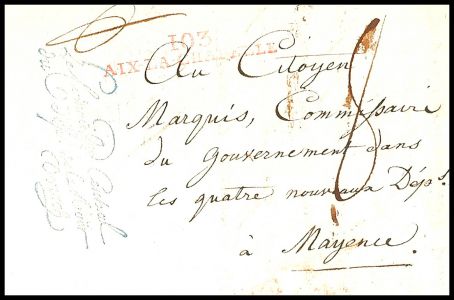 103
AIX-LA-CHAPELLE
Au Citoyen
Marquis, Commissaire
du Gouvernement dans
les quatre nouveaux Déps.
à Mayence.
8